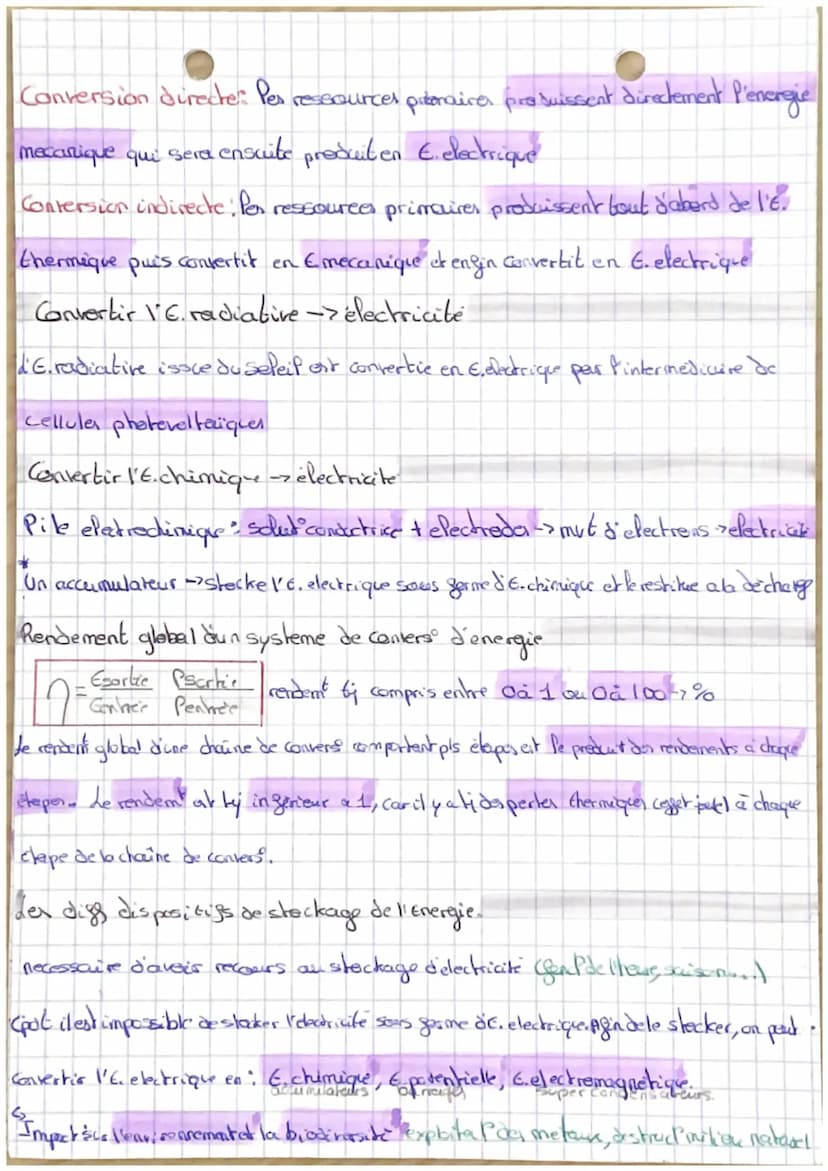 Conversion directe: les ressources primaires produissent directement l'energie
mecanique qui sera ensuite produit en E.electrique
Conversion indirecte: les ressources primaires produissent tout d'abord de l'E.
thermique puis convertit en E mecanique et enfin convertit en E.electrique
Convertir l'E.radiative -> électricité
L'E.radiative issue du soleil est convertie en E.electrique par l'intermédiaire de
cellules photovoltaïques
Convertir l'E.chimique -> électricite
Pile eletrochimique: solut° conductrice + electrodes -> mvt d'electrons -> electricité
* Un accumulateur -> stocke l'E.electrique sous forme d'E.chimique et le restitue a la décharge
Rendement global d'un systeme de convers° d'energie
η = Esortie Psortie
Eentrée Pentrée
rendemt tj compris entre 0 à 1 ou 0 à 100 -> %
le rendemt global d'une chaîne de convers° comportant pls étapes est le produit des rendements à chaque
étapes. Le rendemt est tj inférieur a 1, car il y a tj des pertes thermiques (effet joule) à chaque
étape de la chaîne de convers°.
Les diff dispositifs de stockage de l'Energie.
necessaire d'avoir recours au stockage d'électricité de l'heure, saison...)
il est impossible de stocker l'électricité sous forme d'E.electrique. Afin de le stocker, on peut
convertir l'E.electrique en: E.chimique, E.potentielle, E.electromagnétique.
accumulateurs super condensateurs.
↳ Impact sur l'environnement et la biodiversité exploitat° des metaux, destruct° milieu naturel